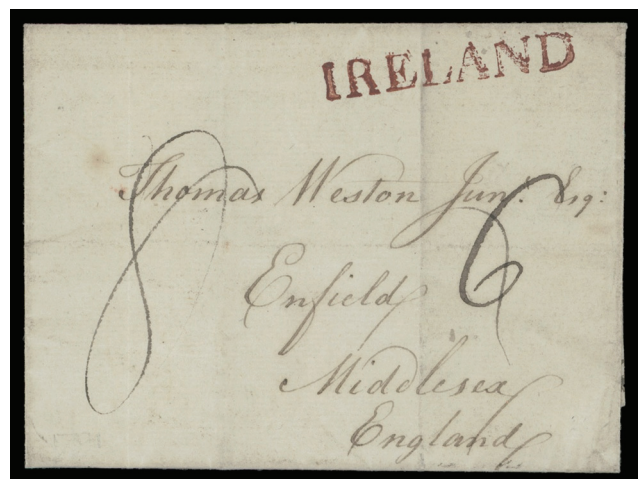 IRELAND
8
Thomas Weston Junr. Esq:
6
Enfield
Middlesex
England